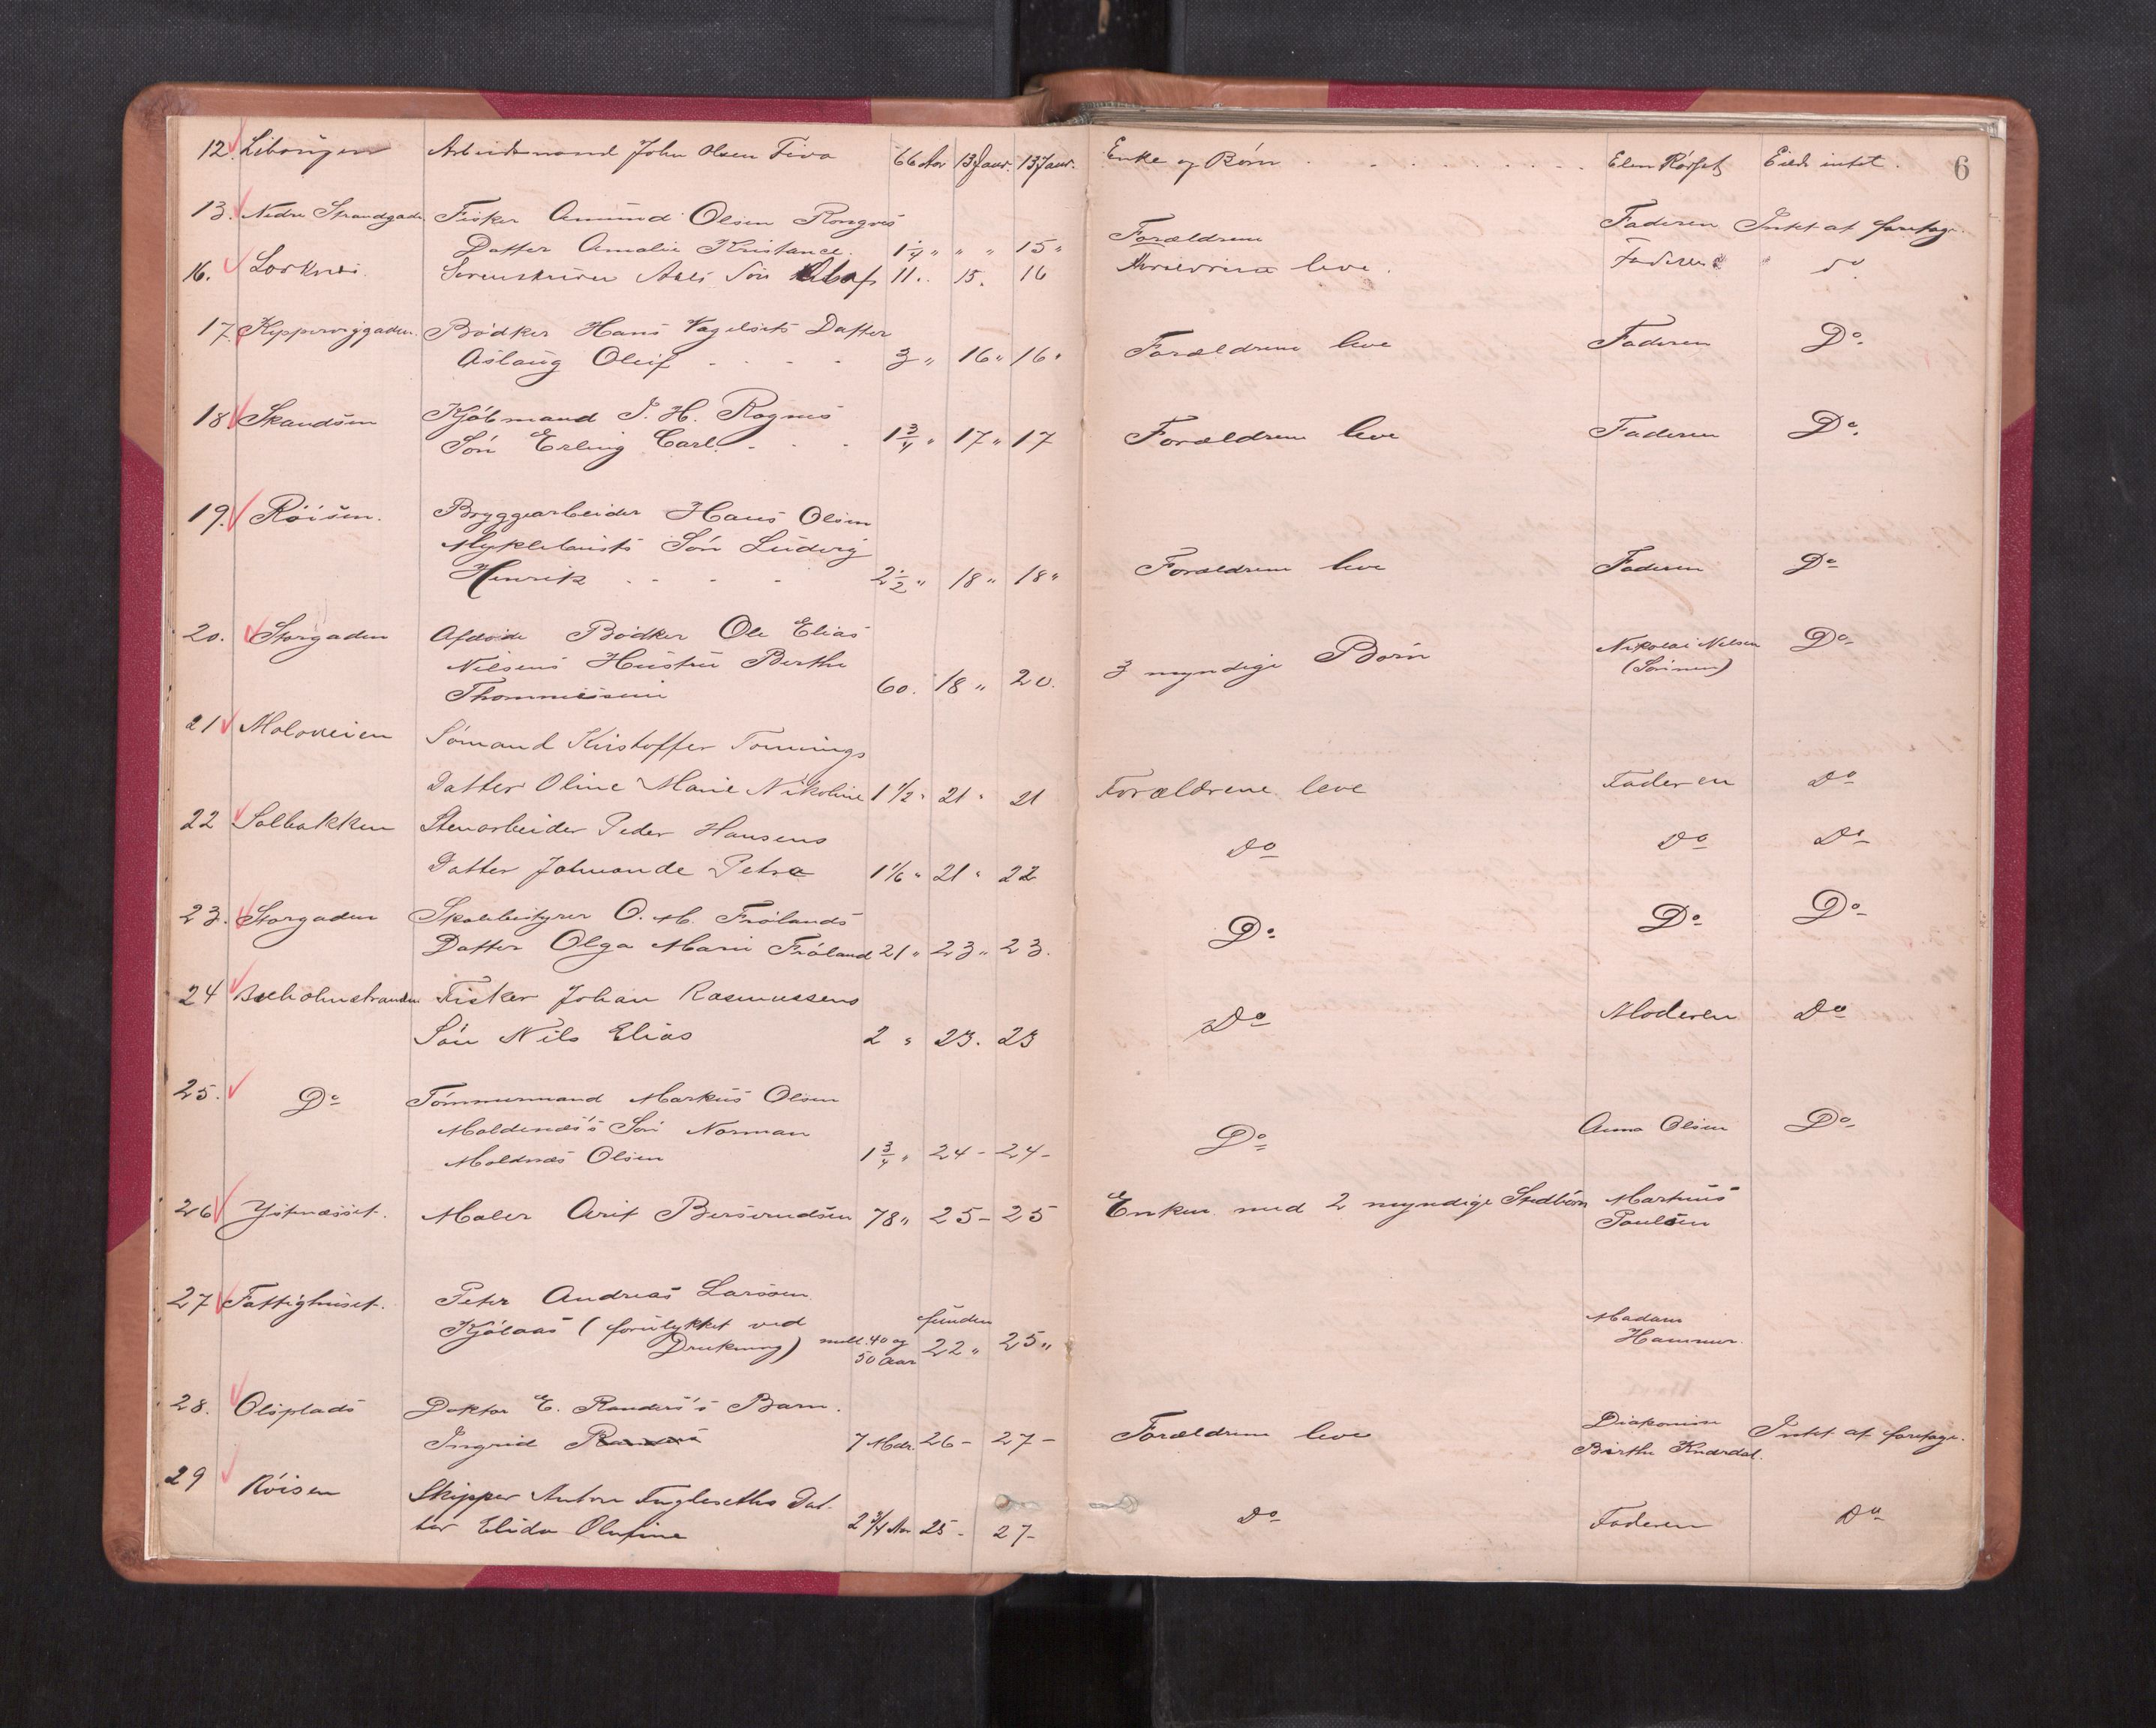 6
12. Arbeidsmand John Olsen Fiva 66 Aar 13 Januar. 13 Januar. Enke og Børn Elen Eiede intet.
13. Nedre Strandgade Fisker Amund Olsen Rongves Faderen Intet at foretage.
Datter Amalie Kristance. 1 1/4 " " " 15 " Forældrene
16. Sorenskriver Søn Olaf 11. 15. 16 leve. Faderen do
17. Kipperviggaden. Bødker Hans Vagelsets Datter
Aslaug Oluf 3 " 16 " 16 " Forældrene leve Faderen Do.
18 Skandsen Kjøbmand J. H. Rognes
Søn Erling Carl. 1 3/4 " 17 " 17 Forældrene leve Faderen Do.
19. Røisen. Bryggearbeider Hans Olsen
Myklebusts Søn Ludvig
Henrik 2 1/2 " 18 " 18 " Forældrene leve Faderen Do
20. Storgaden Afdøde Bødker Ole Elias
Nilsens Hustru Berthe
60. 18 " 20. 3 myndige Børn Nikolai Nilsen (Sønnen) Do
21 Moloveien Sømand Kristoffer Tonnings
Datter Oline Marie Nikoline 1 1/2 " 21 " 21 Forældrene leve Faderen do
22 Solbakken Stenarbeider Peder Hansens
Datter Petra 1 1/6 " 21 " 22 do do do
23. Storgaden Skolebestyrer O. M. Frølands
Datter Olga Marie Frøland 21 " 23 " 23. Do Do Do
24 Fisker Johan Rasmussens
Søn Nils Elias 2 " 23. 23 Do Moderen Do
25. Do Tømmermand Markus Olsen
Moldenæs's Søn Norman
Moldnæs Olsen 1 3/4 " 24 - 24 - Do Anna Olsen Do
26 Ystenæsset. Maler Arit Berserudsen 78 " 25 - 25 Enken med 2 myndige Stedbørn Martinus
Paulsen
27 Fattighuset. Peter Andreas Larssen
Kjølaas (forulykket ved funden Madam
Drukning) mell. 40 og 22 " 25 " Hammer.
50 Aar
28. Olsplads Doktor E. Randers's Barn. Diakonisse
Ingrid Randers 7 Mdr. 26 - 27 - Forældrene leve Birthe Knardal. Intet at foretage.
29 Røisen Skipper Anton Fugleseths Dat-
ter Elida Olufine 2 3/4 Aar 25 - 27 - do Faderen Do